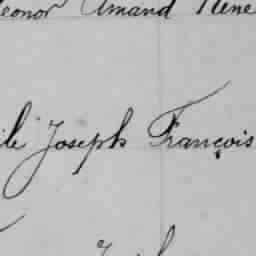 eonor Amand Rene
ile Joseph François